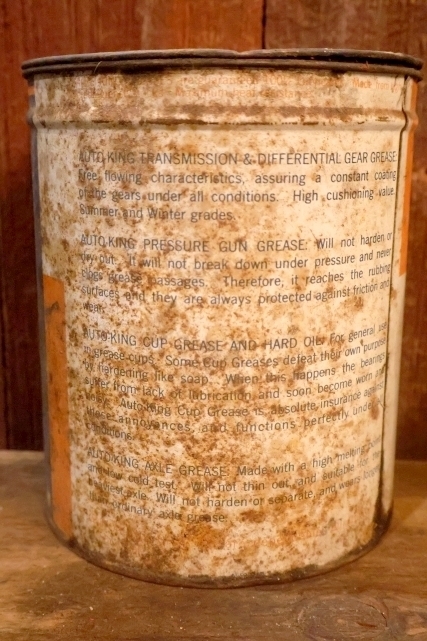 Made from
AUTO KING TRANSMISSION & DIFFERENTIAL GEAR GREASE
Free flowing characteristics, assuring a constant coating
of the gears under all conditions. High cushioning value.
Summer and Winter grades.
AUTO KING PRESSURE GUN GREASE: Will not harden or
dry out. It will not break down under pressure and never
clogs grease passages. Therefore, it reaches the rubbing
surfaces and they are always protected against friction and
wear.
AUTO KING CUP GREASE AND HARD OIL: For general use
in grease cups. Some Cup Greases defeat their own purpose
by hardening like soap. When this happens the bearings
suffer from lack of lubrication and soon become worn
Auto King Cup Grease is absolute insurance against
these annoyances, and functions perfectly under
conditions.
AUTO KING AXLE GREASE: Made with a high melting
and low cold test. Will not thin out and suitable for
axle. Will not harden or separate, and wears longer
than ordinary axle grease.